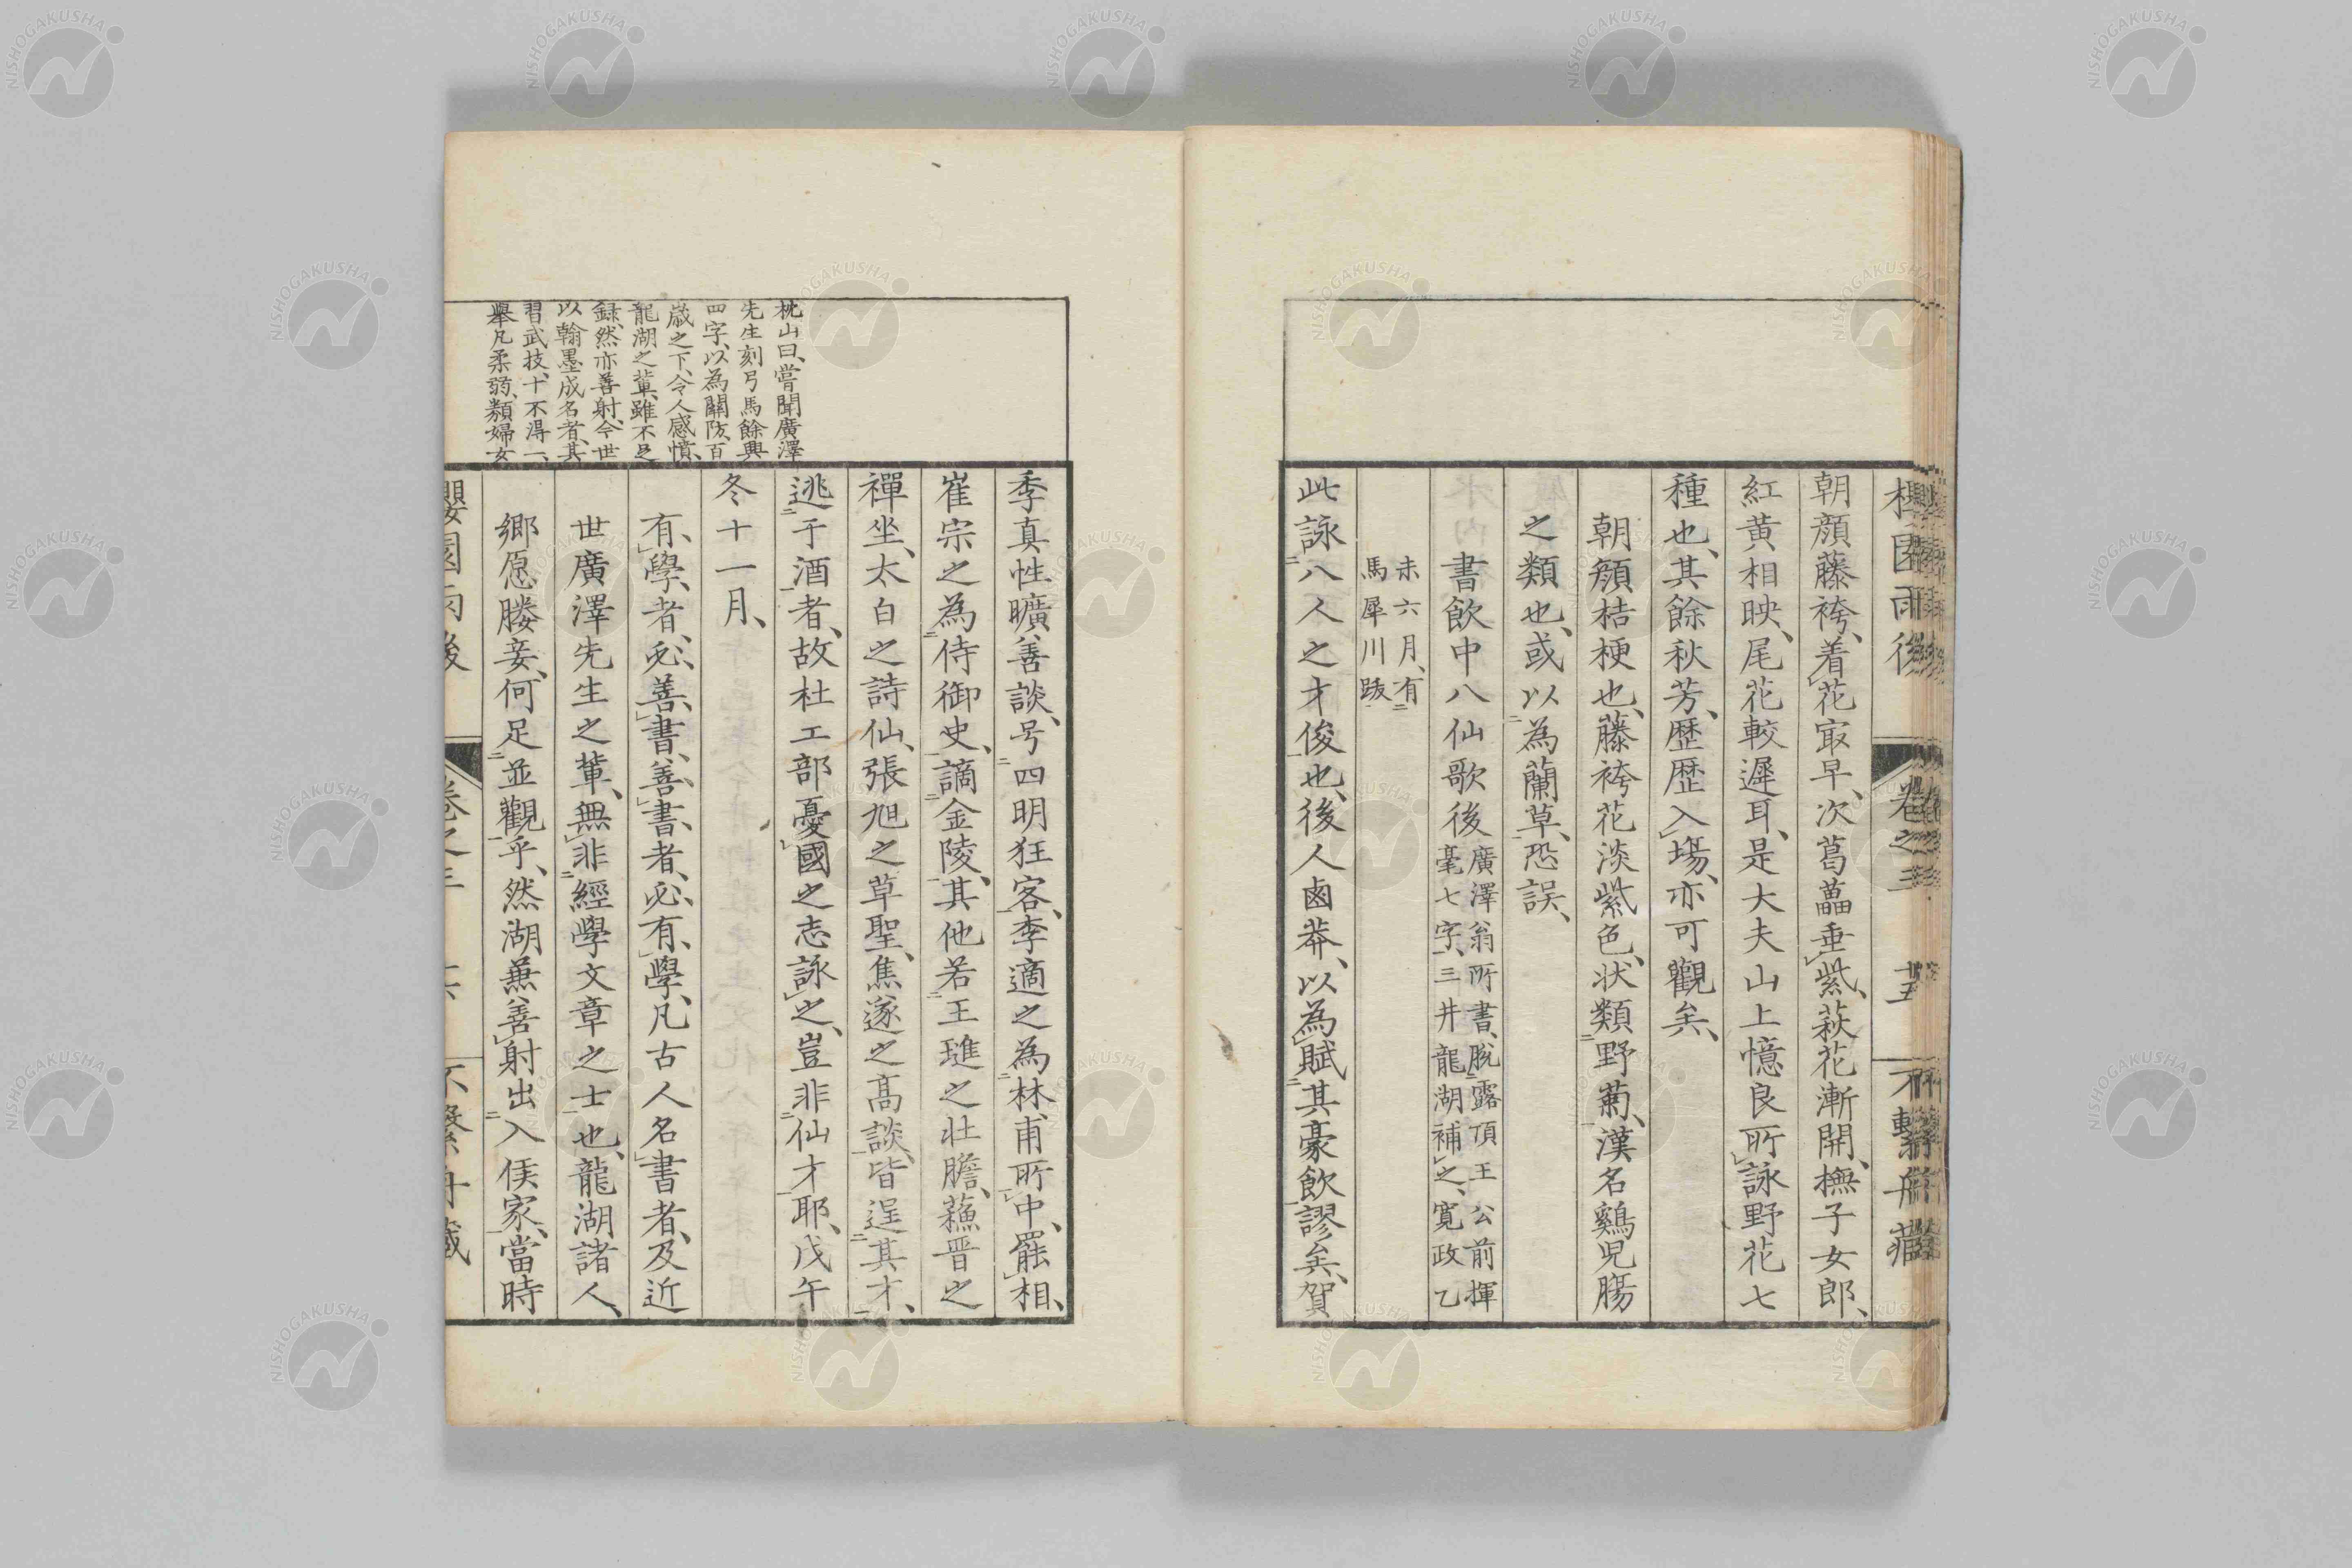 朝顔藤袴、着花㝡早、次葛藟垂紫、萩花漸開、撫子女郎、
紅黄相映、尾花較遲耳、是大夫山上憶良所詠野花七
種也、其餘秋芳、歴歴入場、亦可觀矣、
朝顔桔梗也、藤袴花淡紫色、状類野菊、漢名鷄児腸
之類也、或以為蘭草、恐誤、
書飲中八仙歌後
廣澤翁所書、脱露頂王公前揮
毫七字、三井龍湖補之、寛政乙
未六月、有
馬犀川跋
此詠八人之才俊也、後人鹵莽、以為賦其豪飲謬矣、賀
季真性曠善談、号四明狂客、李適之為林甫所中、罷相、
崔宗之為侍御史、謫金陵、其他若王璡之壮膽、蘓晋之
禪坐、太白之詩仙、張旭之草聖、焦遂之高談、皆逞其才、
逃于酒者、故杜工部憂國之志詠之、豈非仙才耶、戊午
冬十一月、
有學者、必善書、善書者、必有學、凡古人名書者、及近
世廣澤先生之輩、無非經學文章之士也、龍湖諸人、
鄉愿媵妾、何足並觀乎、然湖兼善射出入侯家、當時
枕山曰、嘗聞廣澤
先生刻弓馬餘興
四字、以為關防、百
歳之下、令人感憤、
龍湖之輩、雖不足
録、然亦善射、今世
以翰墨成名者、其
習武技、十不得一、
舉凡柔弱、類婦女
NISHOGAKUSHA